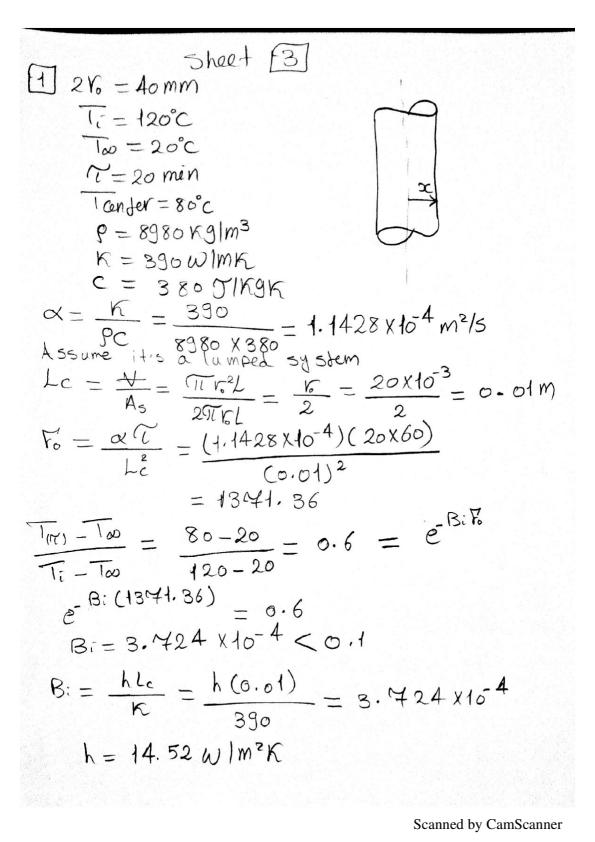 Sheet 3
1 2r₀ = 40mm
Ti = 120°C
T∞ = 20°C
τ = 20 min
Tcenter = 80°C
ρ = 8980 Kg/m³
K = 390 W/mK
C = 380 J/KgK
x
α = K/ρC = 390/(8980 × 380) = 1.1428 × 10⁻⁴ m²/s
Assume it's a lumped system
Lc = V/As = πr₀²L/2πr₀L = r₀/2 = 20×10⁻³/2 = 0.01m
F₀ = ατ/Lc² = (1.1428×10⁻⁴)(20×60)/(0.01)²
= 1371.36
(T(τ) - T∞)/(Ti - T∞) = (80-20)/(120-20) = 0.6 = e^-BiF₀
e^-Bi(1371.36) = 0.6
Bi = 3.724 × 10⁻⁴ < 0.1
Bi = hLc/K = h(0.01)/390 = 3.724 × 10⁻⁴
h = 14.52 W/m²K
Scanned by CamScanner